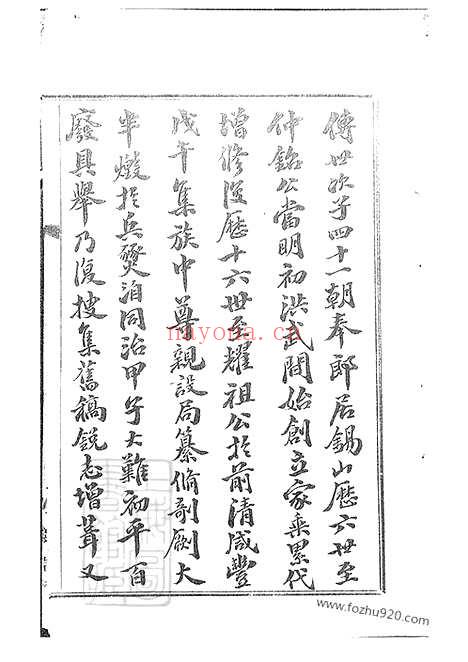 傳世次子四十一朝奉郎居錫山歷六世至
仲銘公當明初洪武間始創立家乘累代
增修復歷十六世至耀祖公於前清咸豐
戊午集族中尊親設局纂脩剞劂大
半燬於兵燹洎同治甲子大難初平百
廢具舉乃復搜集舊稿銳志增葺又
nayona.cn
www.fozhu920.com